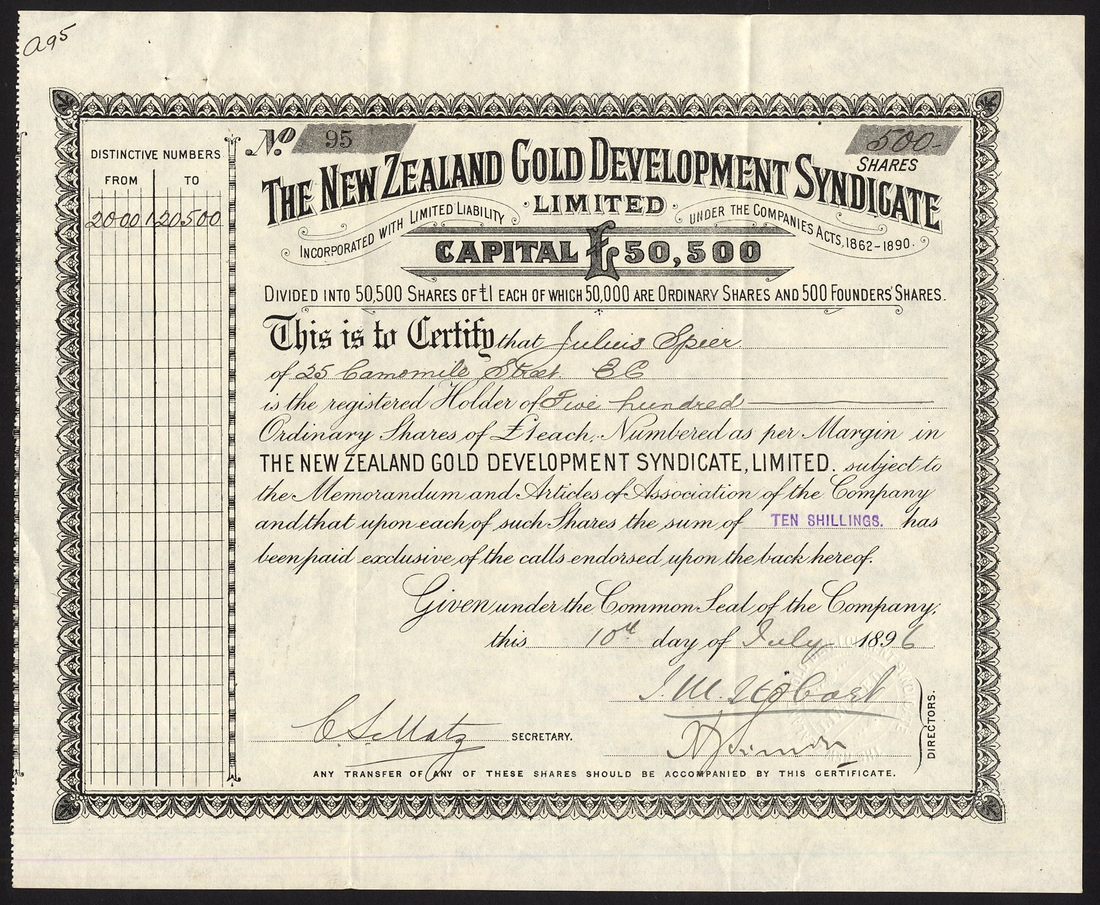 a95
DISTINCTIVE NUMBERS
FROM TO
20001 20500
No. 95
500-
SHARES
THE NEW ZEALAND GOLD DEVELOPMENT SYNDICATE
LIMITED
INCORPORATED WITH LIMITED LIABILITY UNDER THE COMPANIES ACTS, 1862-1890.
CAPITAL £50,500
DIVIDED INTO 50,500 SHARES OF £1 EACH OF WHICH 50,000 ARE ORDINARY SHARES AND 500 FOUNDERS' SHARES.
This is to Certify that Julius Spier
of 25 Camomile Street EC
is the registered Holder of Five hundred
Ordinary Shares of £1 each, Numbered as per Margin in
THE NEW ZEALAND GOLD DEVELOPMENT SYNDICATE, LIMITED. subject to
the Memorandum and Articles of Association of the Company
and that upon each of such Shares the sum of TEN SHILLINGS. has
been paid exclusive of the calls endorsed upon the back hereof.
Given under the Common Seal of the Company,
this 10th day of July 1896
SECRETARY.
DIRECTORS.
ANY TRANSFER OF ANY OF THESE SHARES SHOULD BE ACCOMPANIED BY THIS CERTIFICATE.